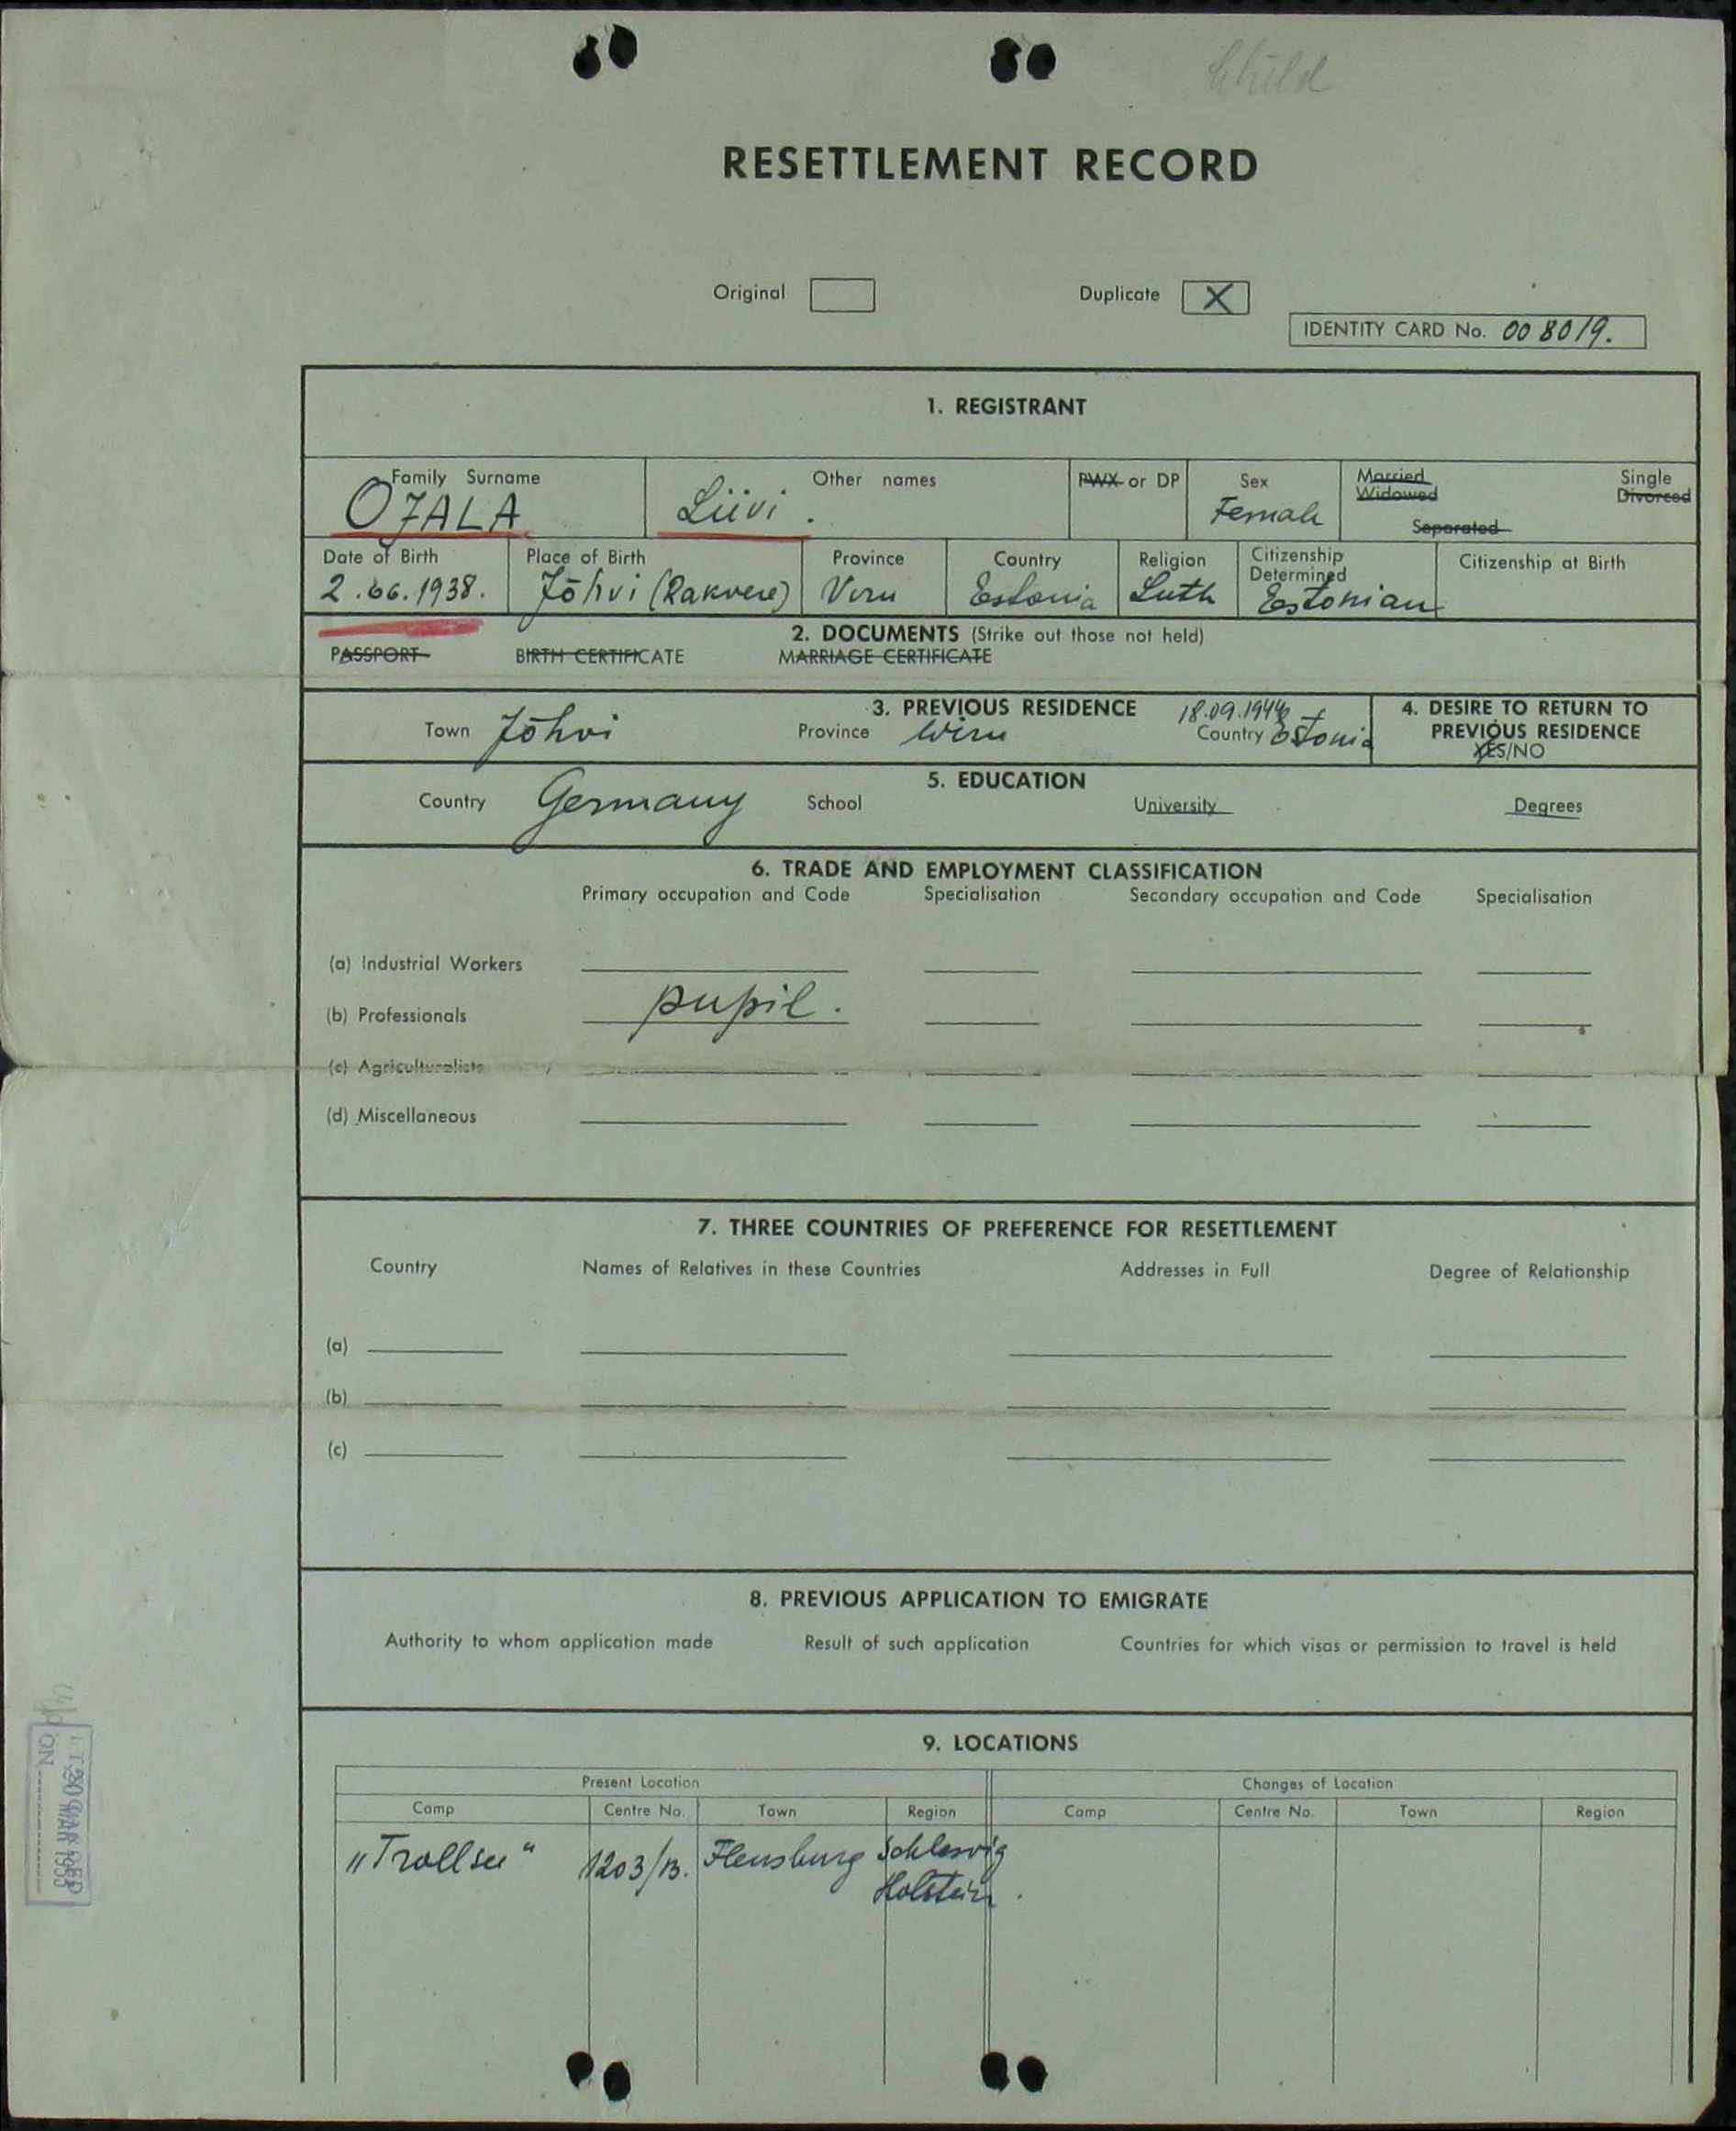 Child
RESETTLEMENT RECORD
Original Duplicate X
IDENTITY CARD No. 008019.
1. REGISTRANT
Family Surname Other names PWX or DP Sex Married Single
Widowed Divorced
Separated
OJALA Liivi. Female
Date of Birth Place of Birth Province Country Religion Citizenship Determined Citizenship at Birth
2.06.1938. Jõhvi (Rakvere) Viru Estonia Luth Estonian
2. DOCUMENTS (Strike out those not held)
PASSPORT BIRTH CERTIFICATE MARRIAGE CERTIFICATE
3. PREVIOUS RESIDENCE 18.09.1944 4. DESIRE TO RETURN TO
Town Jõhvi Province Wiru Country Estonia PREVIOUS RESIDENCE
YES/NO
5. EDUCATION
Country Germany School University Degrees
6. TRADE AND EMPLOYMENT CLASSIFICATION
Primary occupation and Code Specialisation Secondary occupation and Code Specialisation
(a) Industrial Workers
(b) Professionals pupil.
(c) Agriculturalists
(d) Miscellaneous
7. THREE COUNTRIES OF PREFERENCE FOR RESETTLEMENT
Country Names of Relatives in these Countries Addresses in Full Degree of Relationship
(a)
(b)
(c)
8. PREVIOUS APPLICATION TO EMIGRATE
Authority to whom application made Result of such application Countries for which visas or permission to travel is held
9. LOCATIONS
Present Location Changes of Location
Camp Centre No. Town Region Camp Centre No. Town Region
„Trollsee“ 1203/B. Flensburg Schleswig
Holstein.
20 MAR 1953
ON